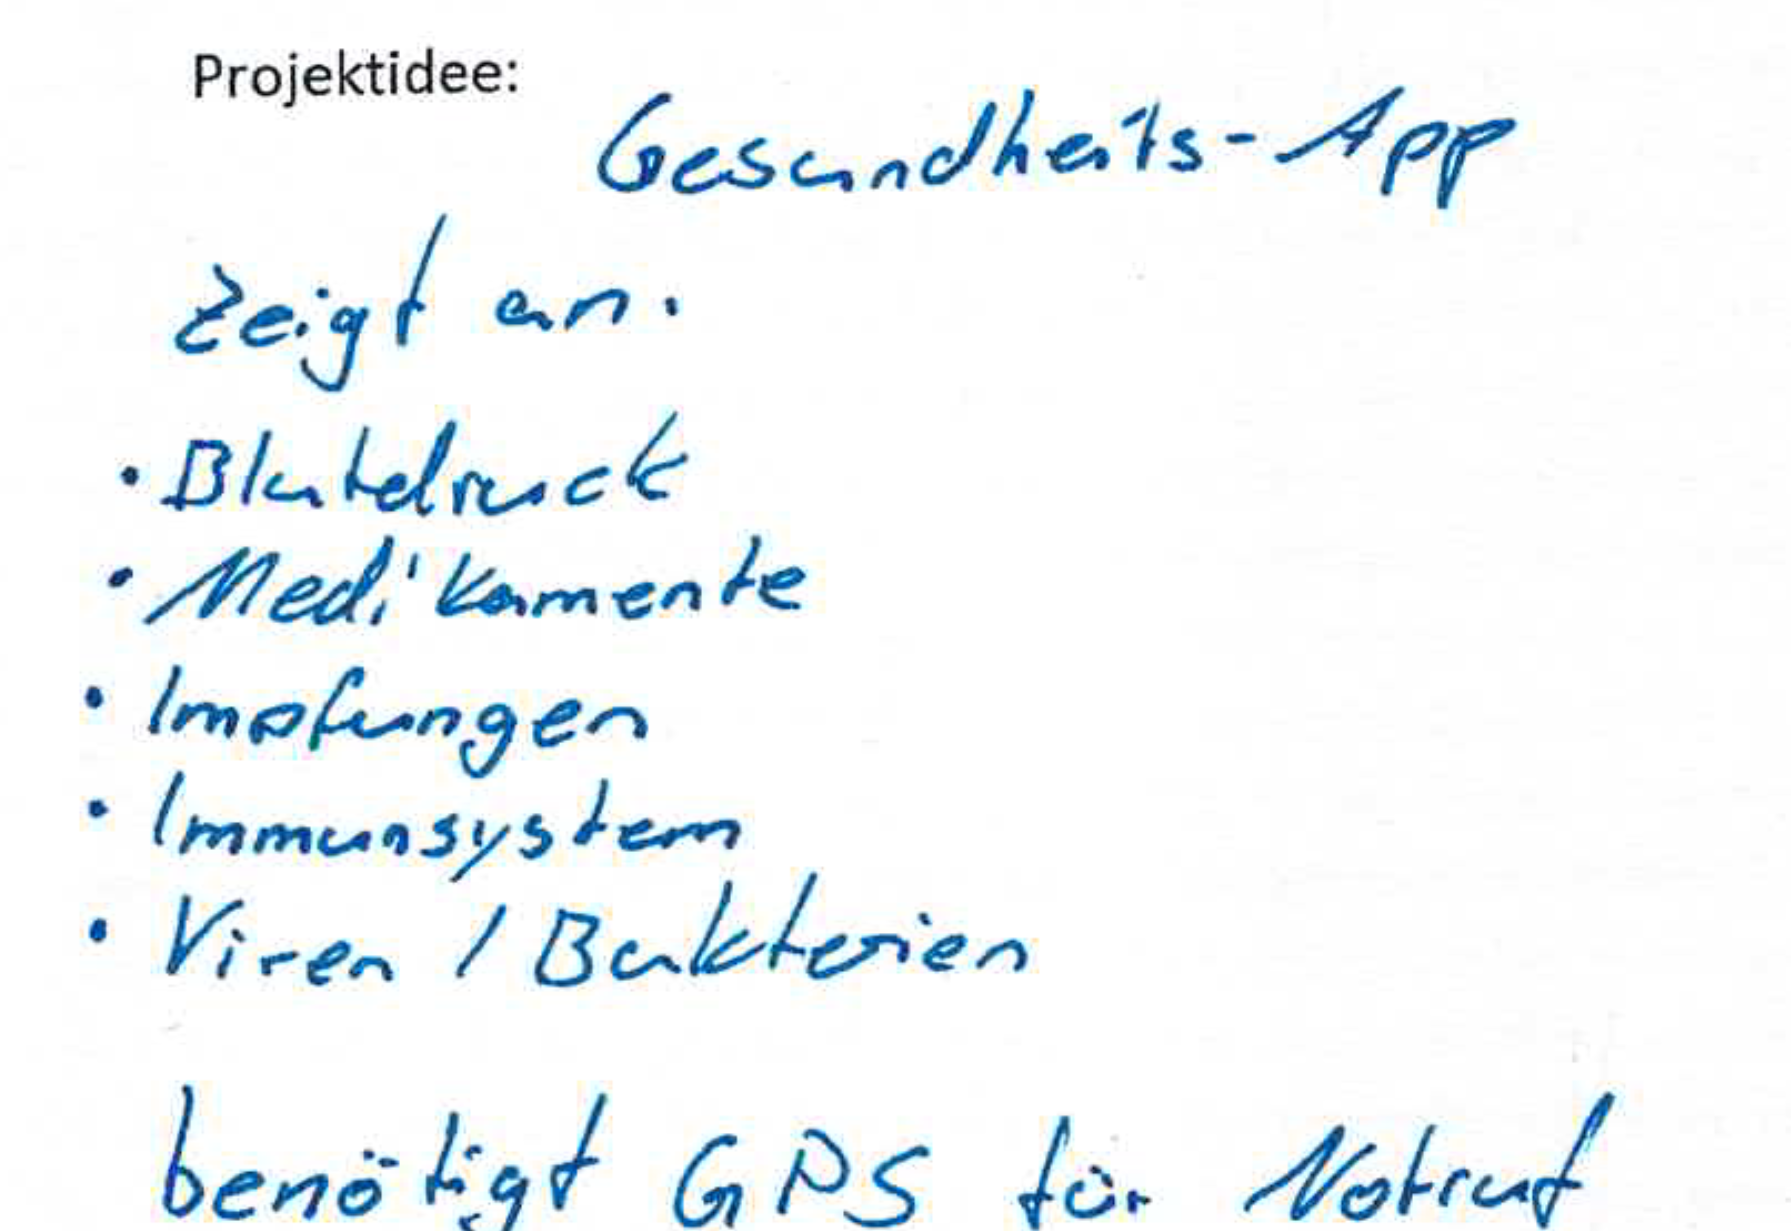 Projektidee:
Gesundheits-App
zeigt an.
• Blutdruck
• Medikamente
• Impfungen
• Immunsystem
• Viren / Bakterien
benötigt GPS für Notruf